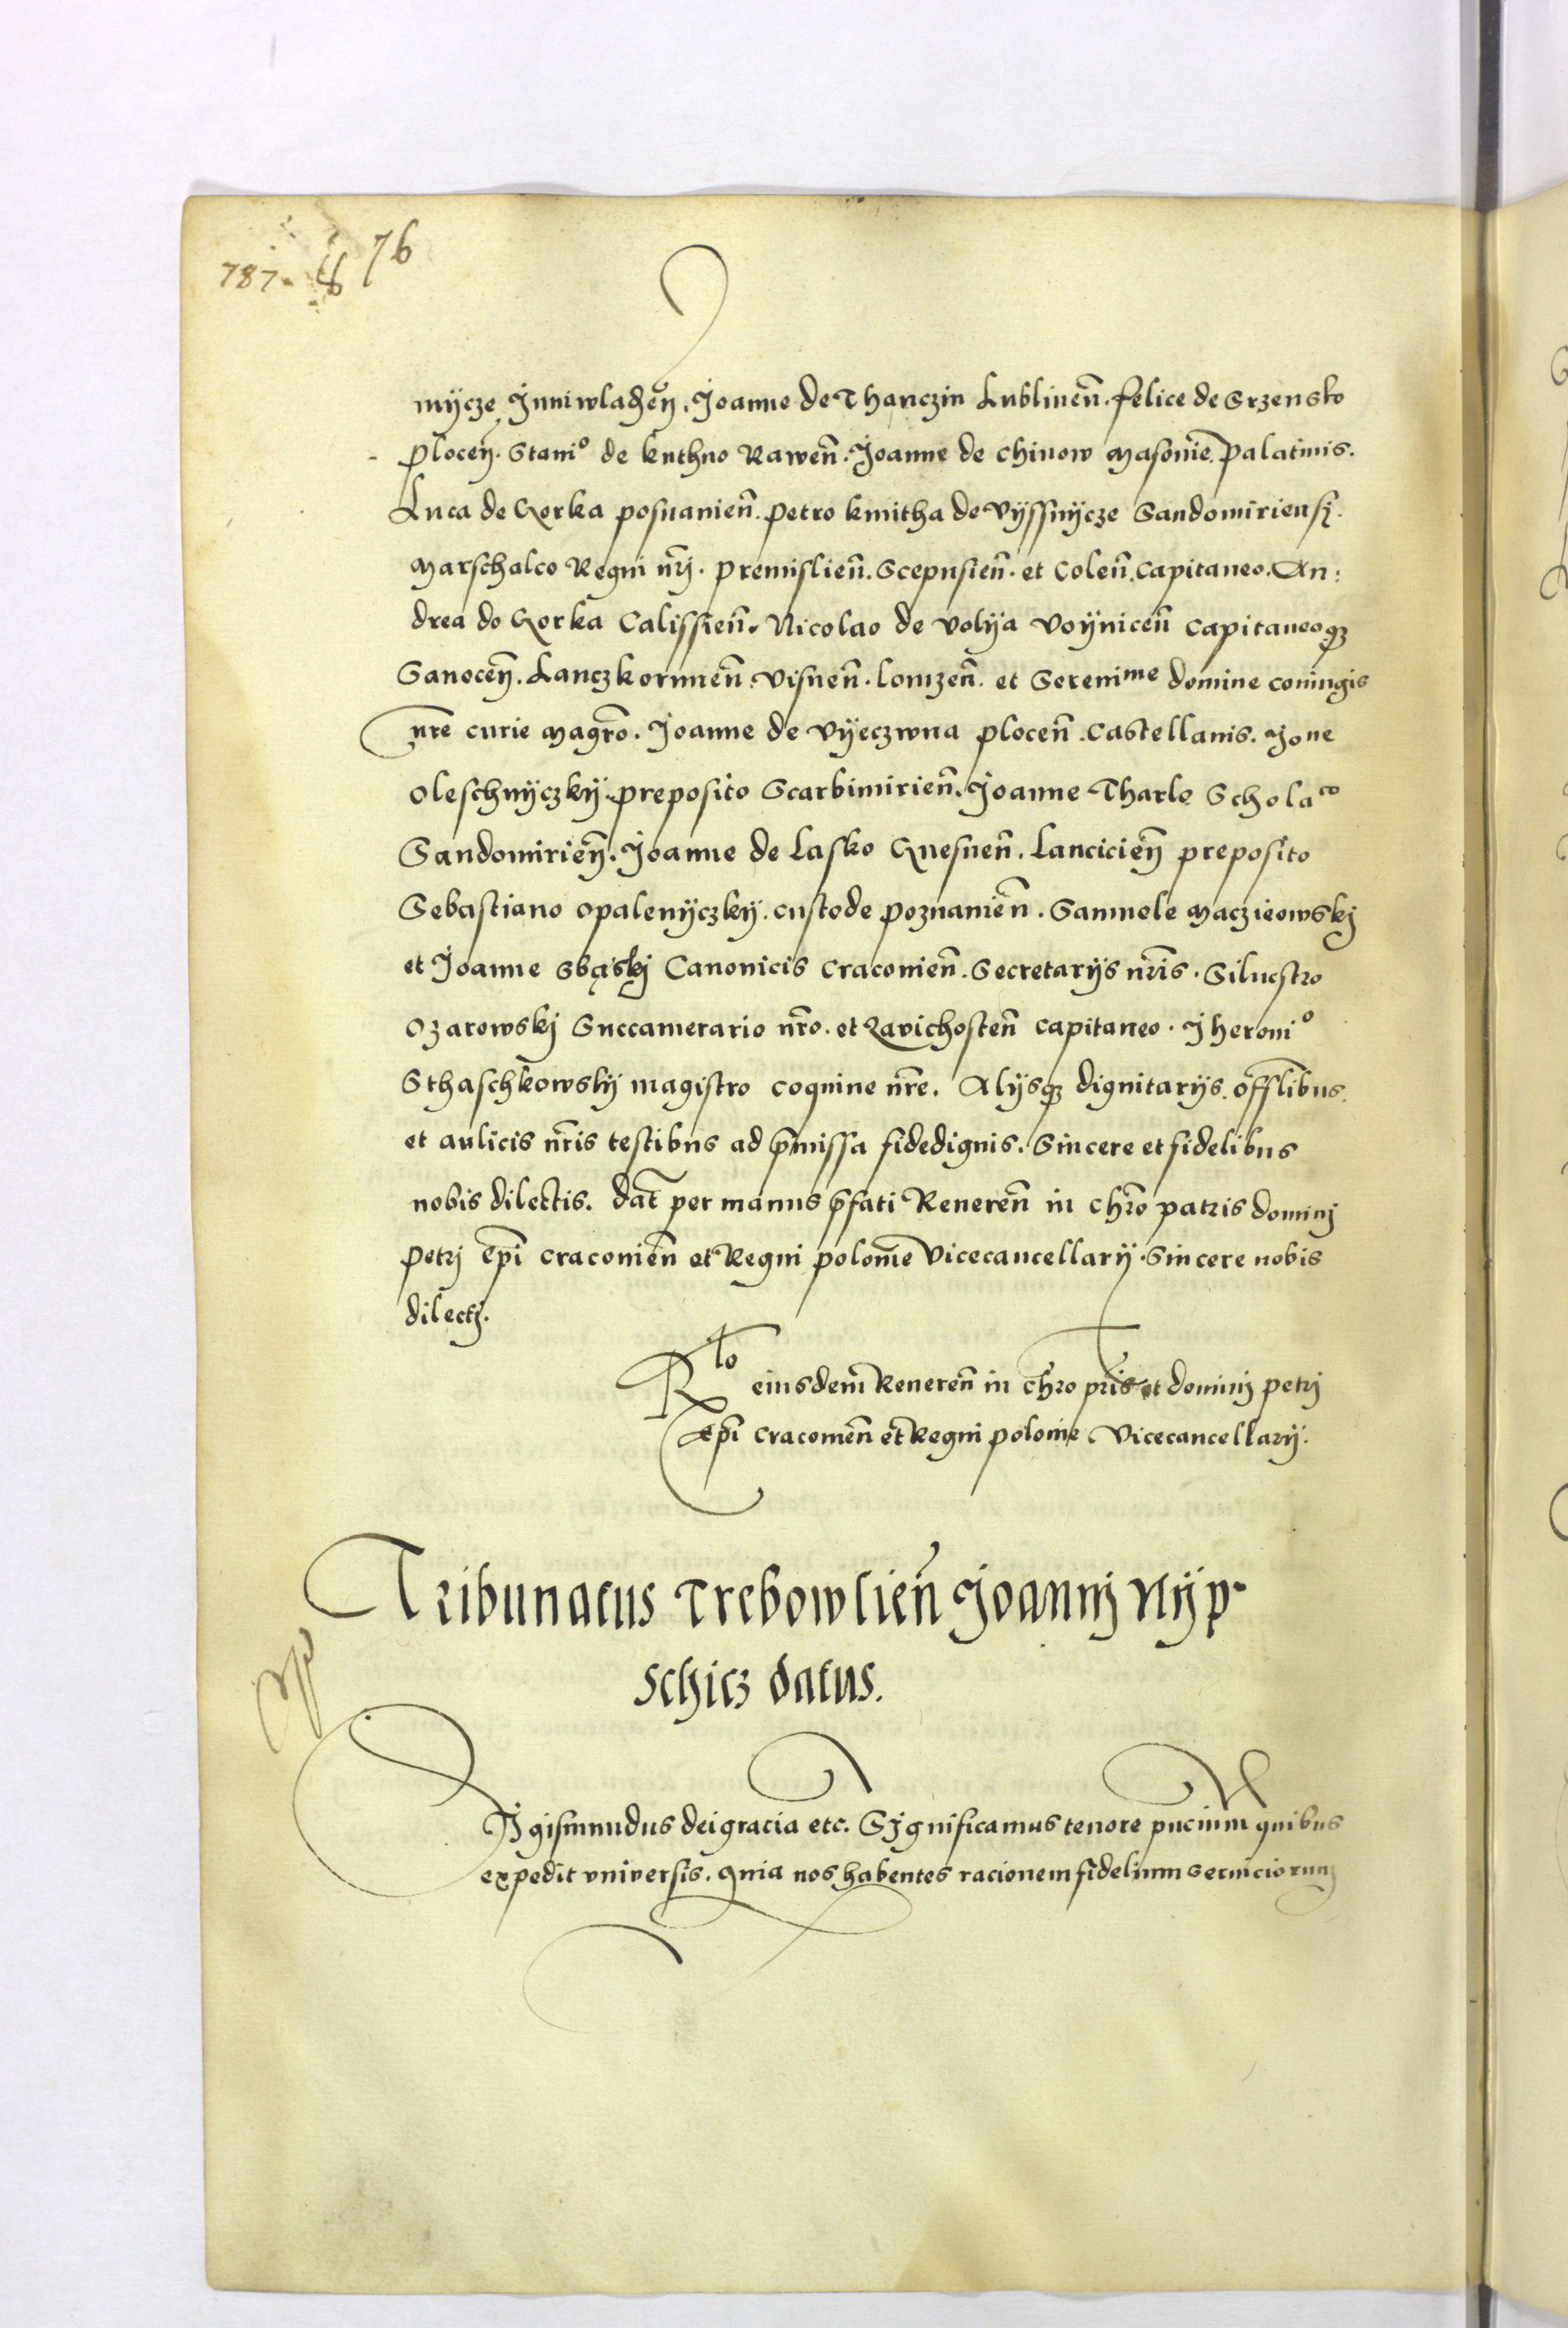 787. 76
mÿcze Juniwladēn. Joanne de Thanczin Lublineñ. felice de Srzensko
ploceñ. Stani⁰ de kuthno Raweñ. Joanne de Chinow Masouie. palatinis.
Luca de Gorka posnanieñ. petro kmitha de Vÿssnÿcze Sandomiriensi.
Marschalco Regni nrj. premislieñ. Scepusieñ. et Coleñ. Capitaneo. An:
drea de Gorka Calissieñ. Nicolao de Volÿa Voÿniceñ capitaneoqȝ
Sanoceñ. Lanczkoruneñ. Visneñ. lomzeñ. et Serenime domine coniugis
nre curie magro. Joanne de Vÿeczwna ploceñ. Castellanis. Jone
Oleschnÿczkÿ. preposito Scarbimirieñ. Joanne Tharlo Scholaco
Sandomirieñ. Joanne de Lasko Gnesneñ. Lancicieñ preposito
Sebastiano Opalenÿczkÿ. custode poznanieñ. Samuele Maczieowskj
et Joanne Sbąskj Canonicis Cracouieñ. Secretarÿs nris. Siluestro
Ozarowskj Succamerario nro. et Zavichosteñ capitaneo. Jheroni⁰
Sthaschkowskÿ magistro coquine nre. Alÿsqȝ dignitarÿs. offlibus
et aulicis nris testibus ad pmissa fidedignis. Sincere et fidelibus
nobis dilectis. dat per manus pfati Reuereñ in chro patris dominj
petrj epi cracouieñ et Regni polonie Vicecancellarÿ. Sincere nobis
dilectj.
Rlo eiusdem Reuereñ in chro pris et dominj petrj
epi Cracouieñ et Regni polonie Vicecancellarÿ.
Tribunatus Trebowlieñ Joannj Nÿp-
schicz datus.
Sjgismundus dei gracia etc. Significamus tenore pncium quibus
expedit vniversis. quia nos habentes racionem fidelium seruiciorum